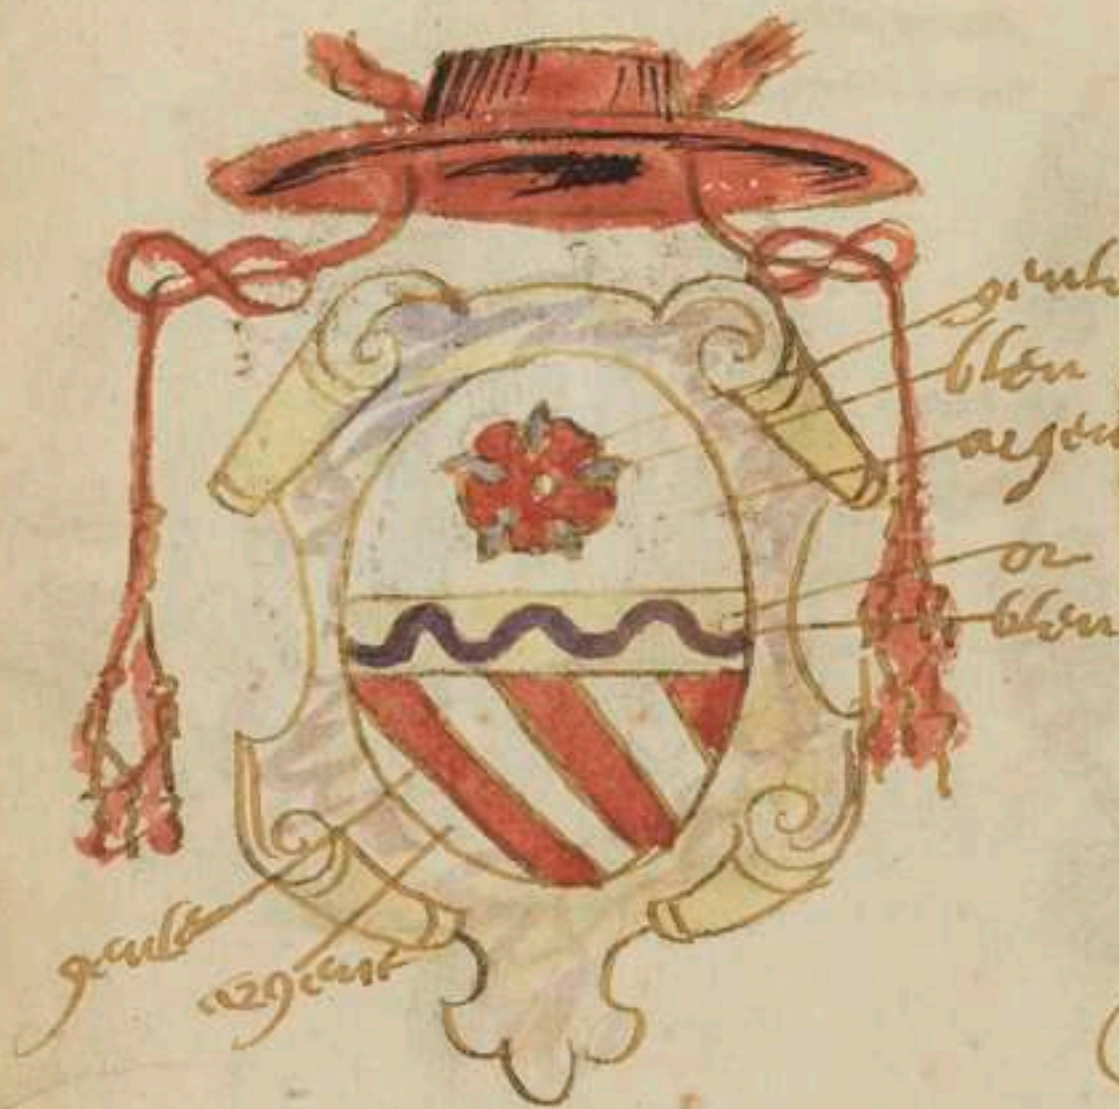 geul
bleu
argen
or
bleu
geule
argent